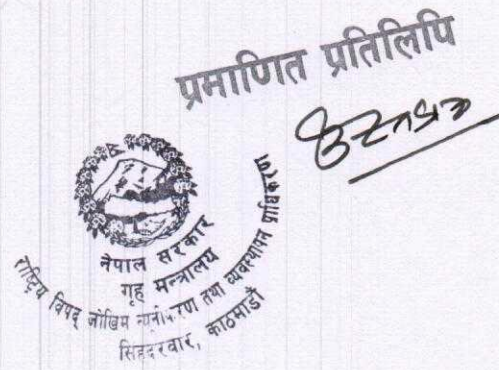 प्रमाणित प्रतिलिपि
नेपाल सरकार
गृह मन्त्रालय
राष्ट्रिय विपद् जोखिम न्यूनीकरण तथा व्यवस्थापन प्राधिकरण
सिंहदरवार, काठमाडौं